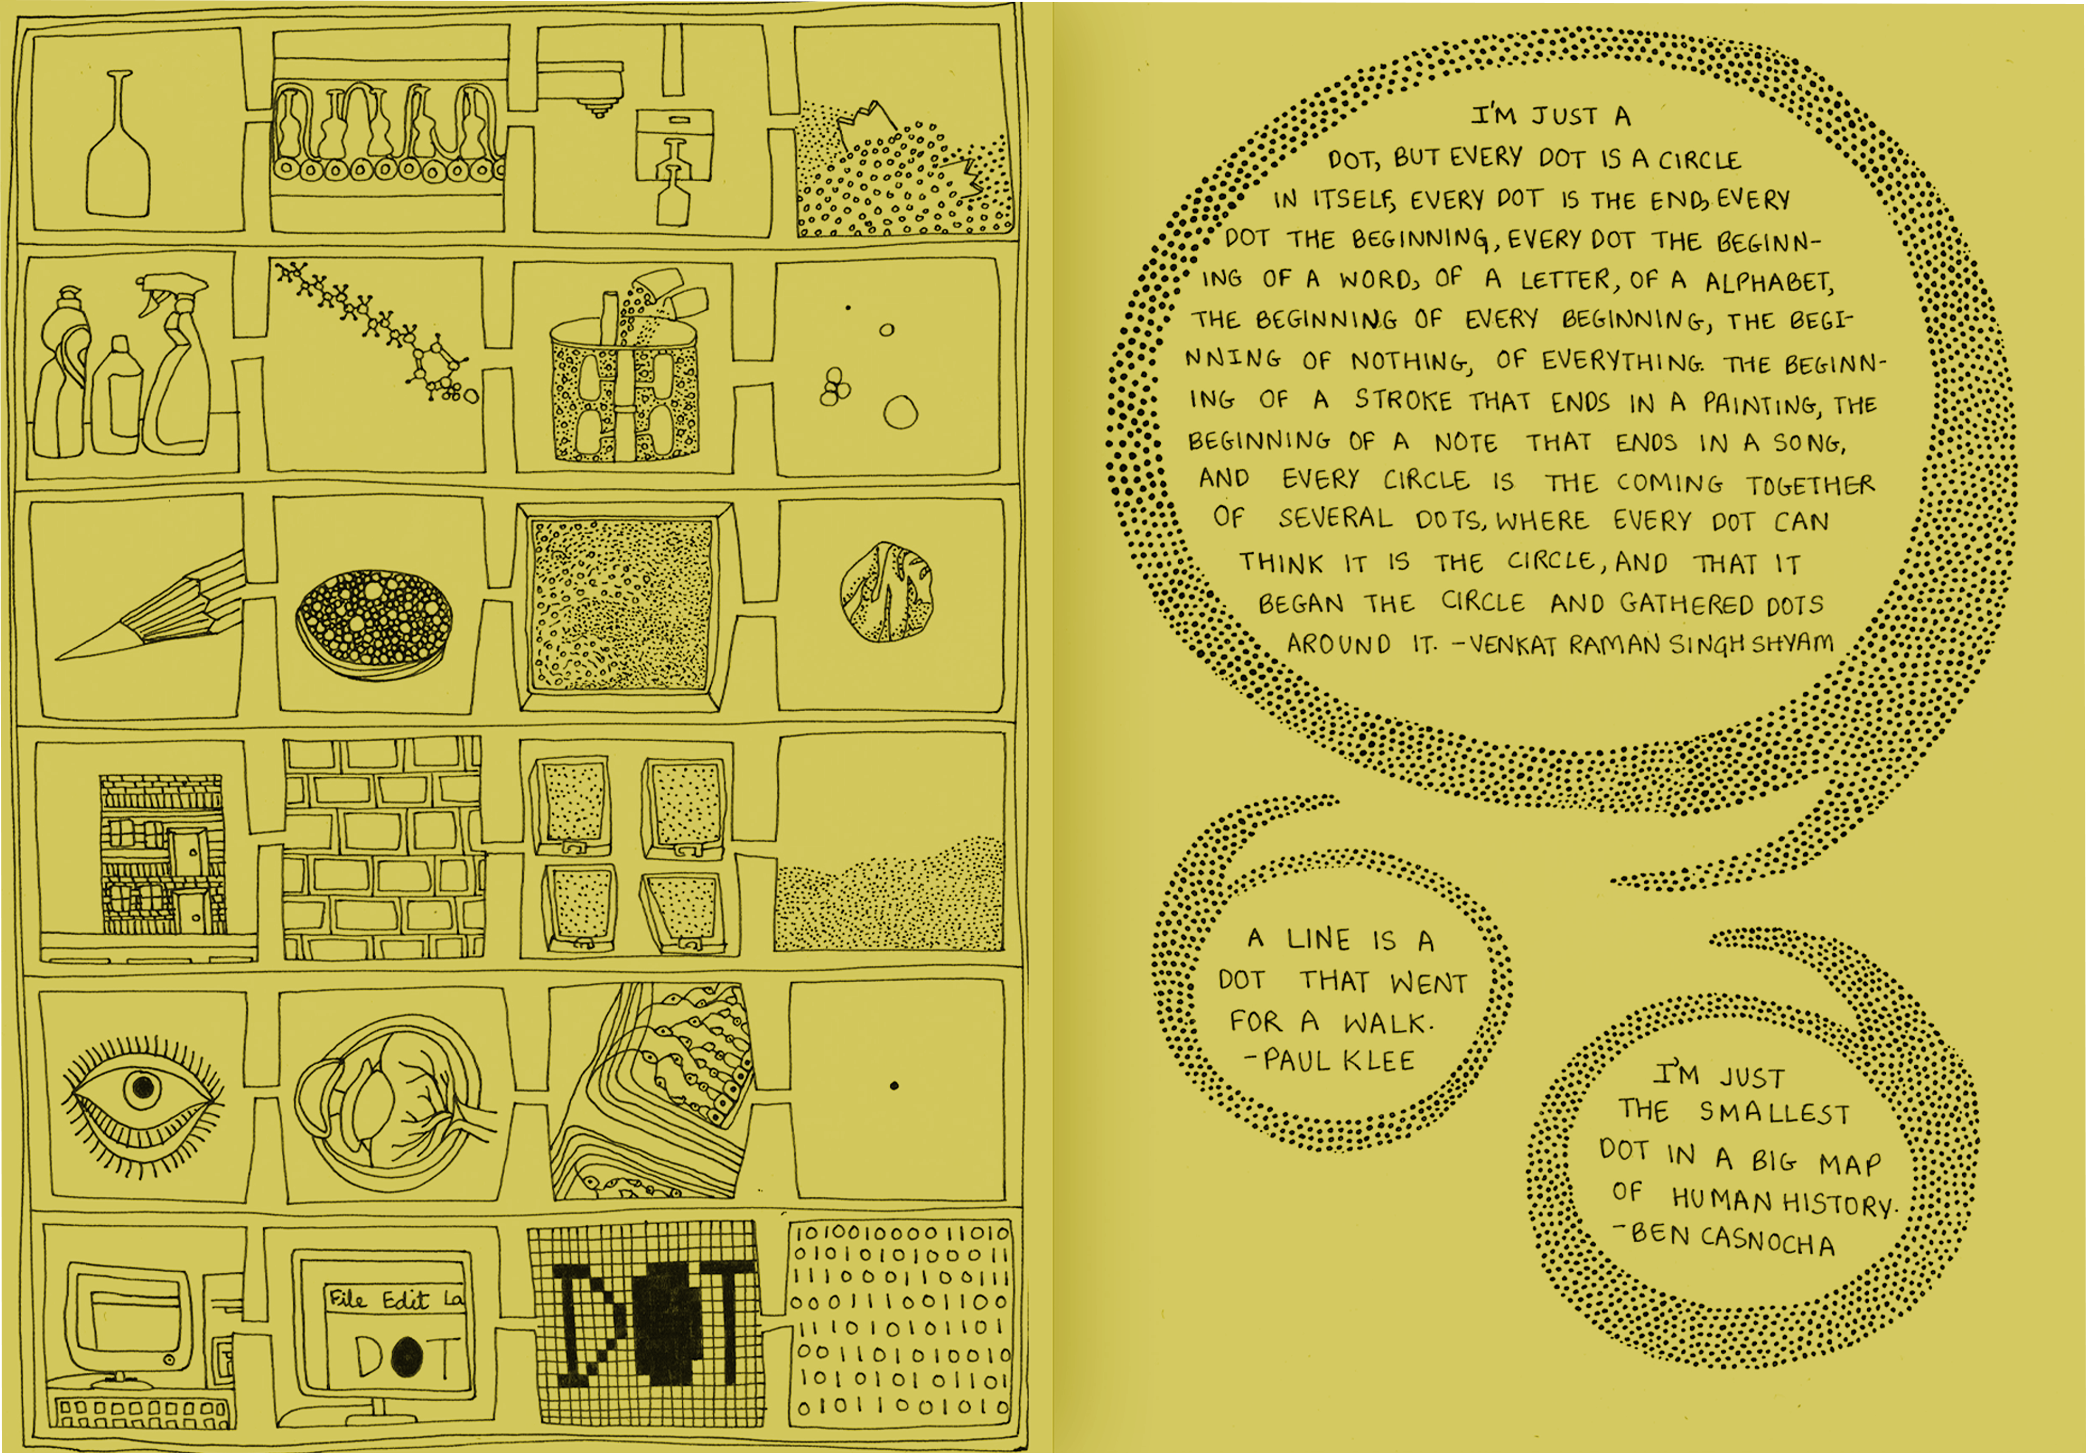 File Edit La
DOT
DOT
101001000011010
0101010100011
1110001100111
000111001100
111010101101
001101010010
101010101101
01011001010
I'M JUST A
DOT, BUT EVERY DOT IS A CIRCLE
IN ITSELF, EVERY DOT IS THE END, EVERY
DOT THE BEGINNING, EVERY DOT THE BEGINN-
ING OF A WORD, OF A LETTER, OF A ALPHABET,
THE BEGINNING OF EVERY BEGINNING, THE BEGI-
NNING OF NOTHING, OF EVERYTHING. THE BEGINN-
ING OF A STROKE THAT ENDS IN A PAINTING, THE
BEGINNING OF A NOTE THAT ENDS IN A SONG,
AND EVERY CIRCLE IS THE COMING TOGETHER
OF SEVERAL DOTS, WHERE EVERY DOT CAN
THINK IT IS THE CIRCLE, AND THAT IT
BEGAN THE CIRCLE AND GATHERED DOTS
AROUND IT. -VENKAT RAMAN SINGH SHYAM
A LINE IS A
DOT THAT WENT
FOR A WALK.
-PAUL KLEE
I'M JUST
THE SMALLEST
DOT IN A BIG MAP
OF HUMAN HISTORY.
-BEN CASNOCHA